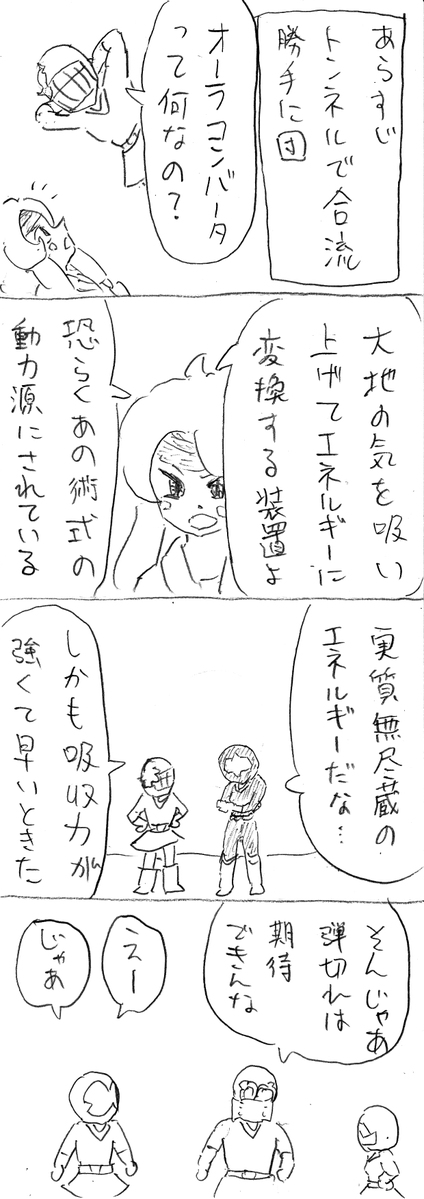 あらすじ
トンネルで合流
勝手に団
オーラコンバータ
って何なの？
大地の気を吸い
上げてエネルギーに
変換する装置よ
恐らくあの術式の
動力源にされている
実質無尽蔵の
エネルギーだな…
しかも吸収力が
強くて早いときた
そんじゃあ
弾切れは
期待
できんな
うえー
じゃあ